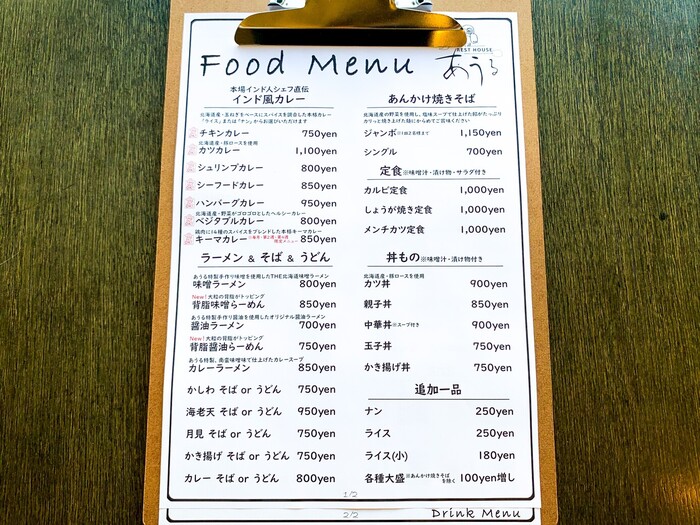 REST HOUSE
あうる
Food Menu
本場インド人シェフ直伝
インド風カレー
北海道産・玉ねぎをベースにスパイスを調合した本格カレー
「ライス」または「ナン」からお選びいただけます
チキンカレー 750yen
北海道産・豚ロースを使用
カツカレー 1,100yen
シュリンプカレー 800yen
シーフードカレー 850yen
ハンバーグカレー 950yen
北海道産・野菜がゴロゴロとしたヘルシーカレー
ベジタブルカレー 800yen
鶏肉に14種のスパイスをブレンドした本格キーマカレー
キーマカレー 850yen
ラーメン & そば & うどん
あうる特製手作り味噌を使用したTHE北海道味噌ラーメン
味噌ラーメン 800yen
New! 大粒の背脂がトッピング
背脂味噌らーめん 850yen
あうる特製手作り醤油を使用したオリジナル醤油ラーメン
醤油ラーメン 700yen
New! 大粒の背脂がトッピング
背脂醤油らーめん 750yen
カレーラーメン 850yen
かしわ そば or うどん 750yen
海老天 そば or うどん 950yen
月見 そば or うどん 750yen
かき揚げ そば or うどん 750yen
カレー そば or うどん 800yen
あんかけ焼きそば
北海道産の野菜を使用し、塩味スープで仕上げた餡がたっぷり
カリっと焼き上げた麺にからめてご賞味ください
ジャンボ 1,150yen
シングル 700yen
定食 ※味噌汁・漬け物・サラダ付き
カルビ定食 1,000yen
しょうが焼き定食 1,000yen
メンチカツ定食 1,000yen
丼もの ※味噌汁・漬け物付き
北海道産・豚ロースを使用
カツ丼 900yen
親子丼 850yen
中華丼 ※スープ付き 900yen
玉子丼 750yen
かき揚げ丼 750yen
追加一品
ナン 250yen
ライス 250yen
ライス(小) 180yen
各種大盛 ※あんかけ焼きそばを除く 100yen増し
1/2
2/2
Drink Menu